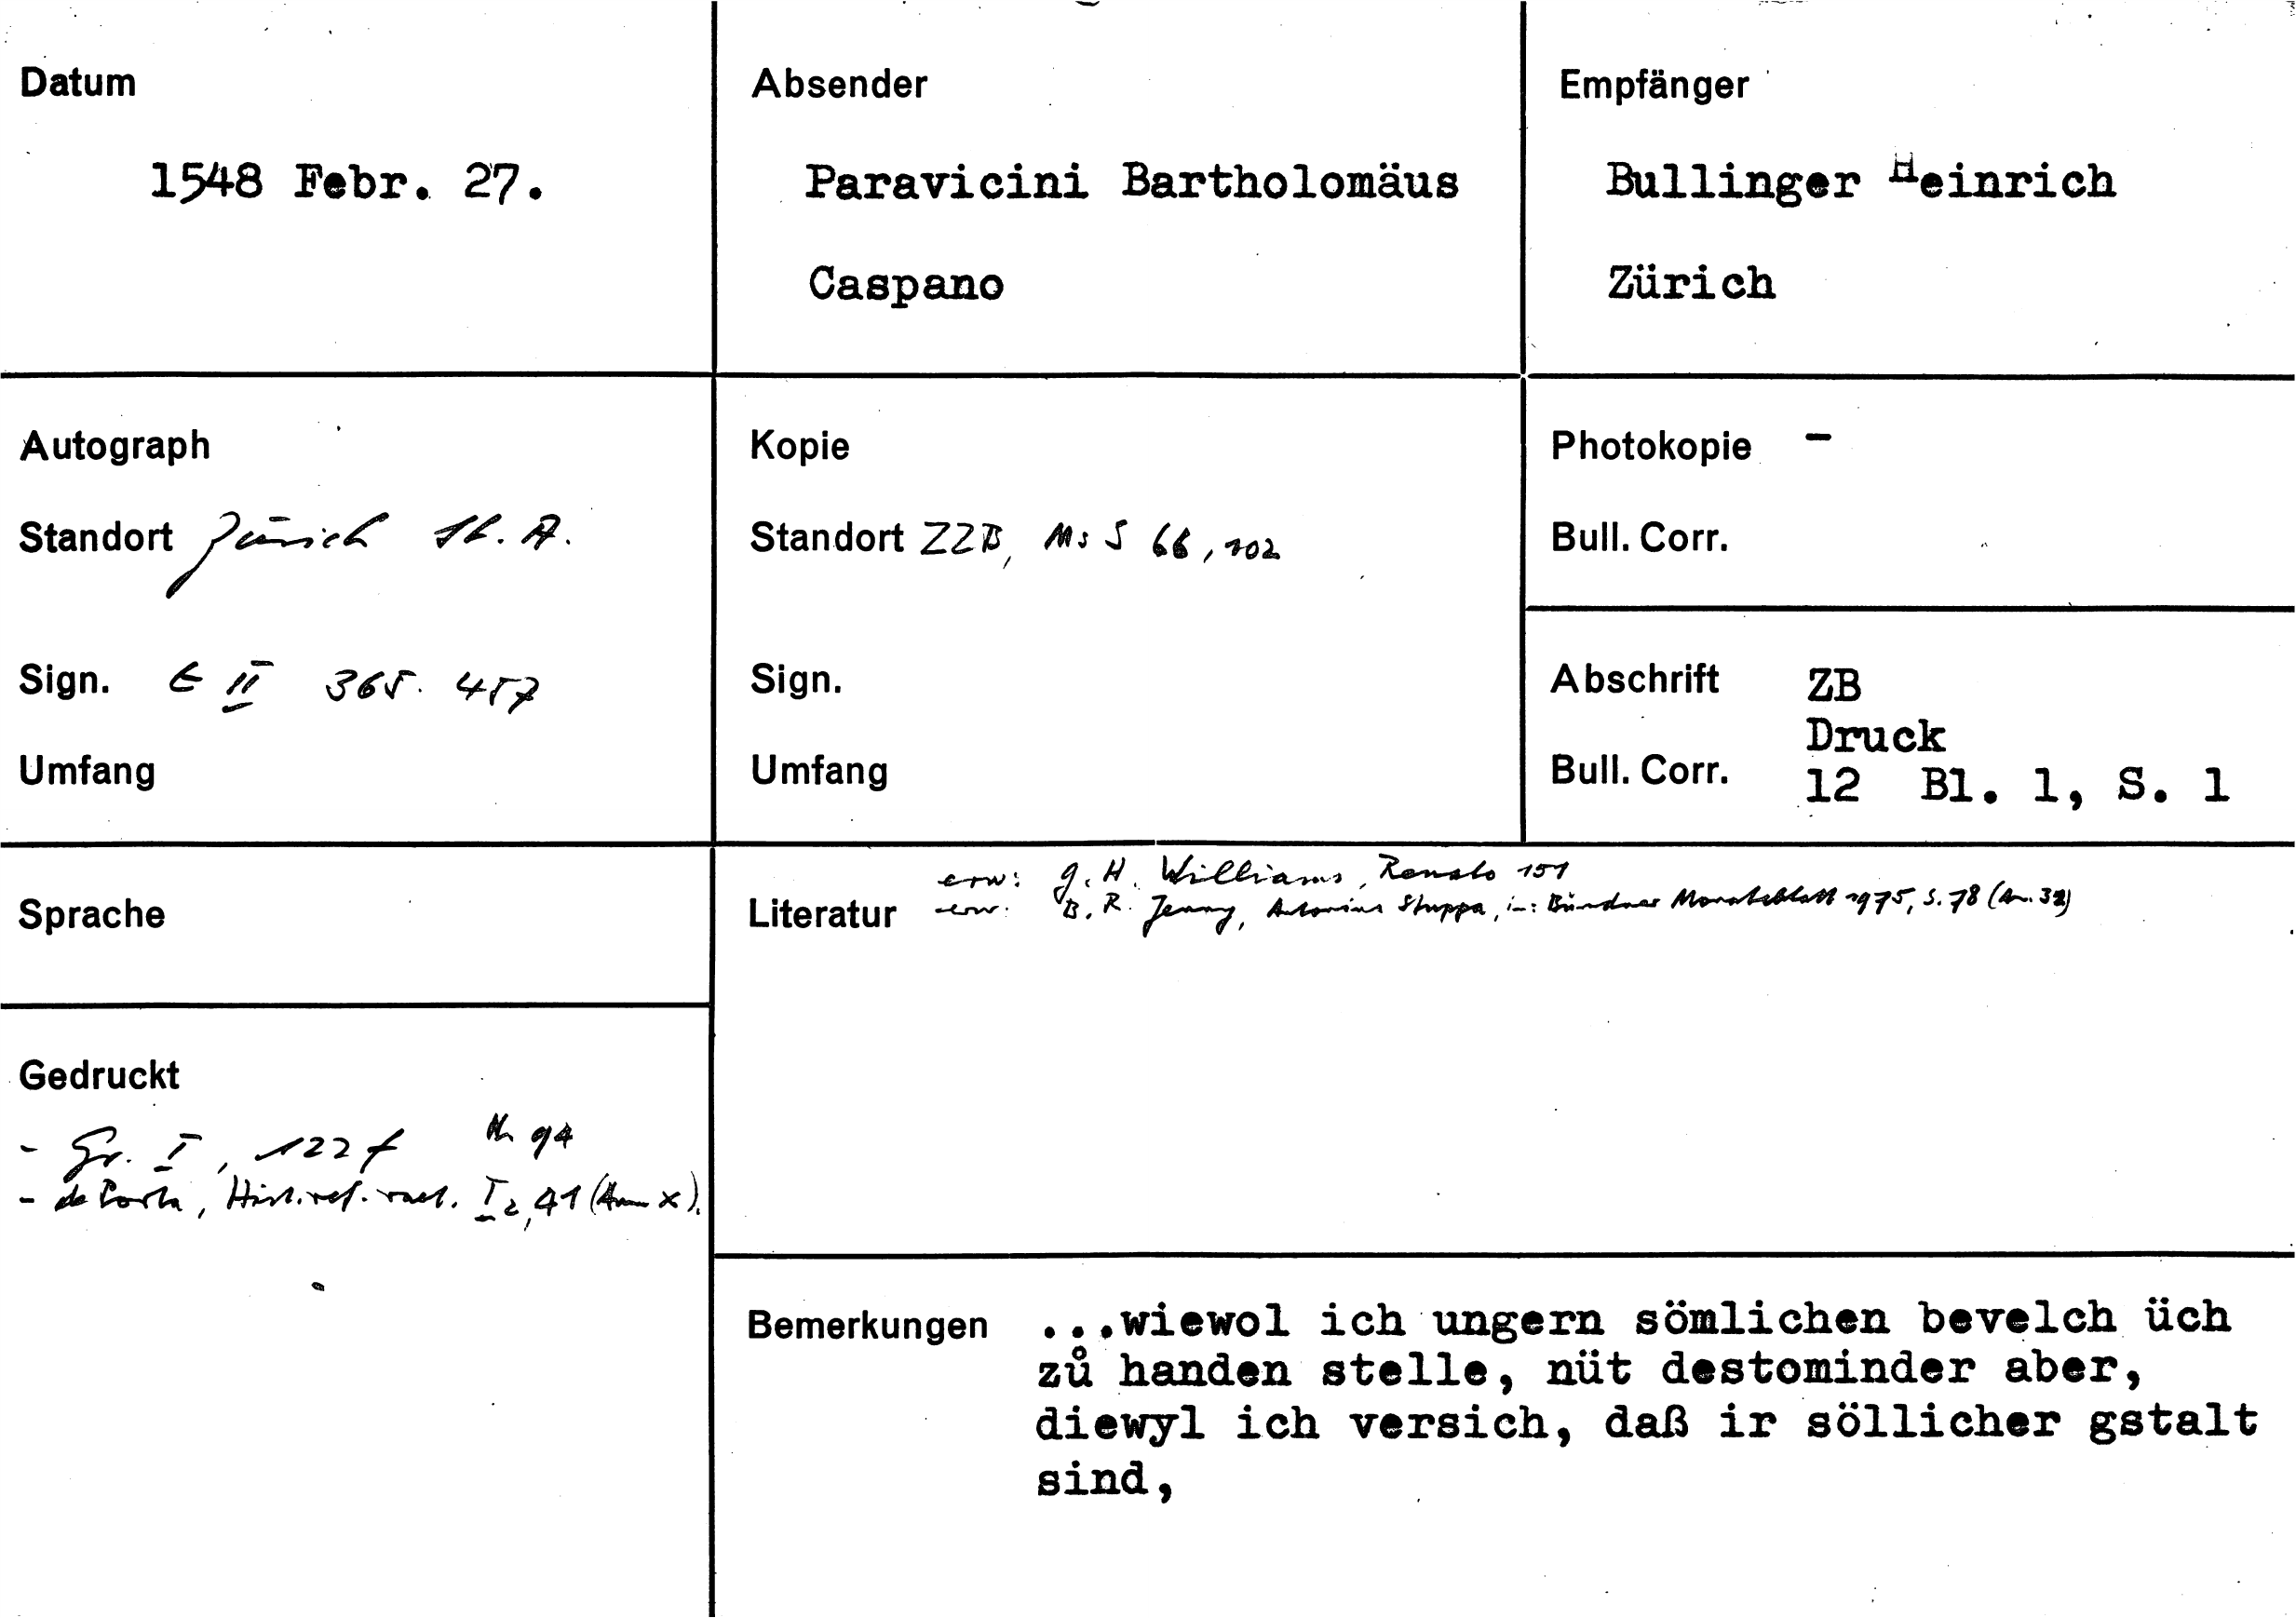 Datum
1548 Febr. 27.
Absender
Paravicini Bartholomäus
Caspano
Empfänger
Bullinger Heinrich
Zürich
Autograph
Standort Zürich St. A.
Sign. E II 365. 457
Umfang
Kopie
Standort ZZB, Ms S 66, 102
Sign.
Umfang
Photokopie -
Bull. Corr.
Abschrift ZB
Druck
Bull. Corr. 12 Bl. 1, S. 1
Sprache
Literatur
erw: G. H. Williams, Renato 151
erw: B. R. Jenny, Antonius Stuppa, in: Bündner Monatsblatt 1975, S. 78
Gedruckt
- Gr. I, 122 f Nr 94
- de Porta, Hist. ref. raet. I 2, 41 (Anm x).
Bemerkungen ...wiewol ich ungern sömlichen bevelch üch
zů handen stelle, nüt destominder aber,
diewyl ich versich, daß ir söllicher gstalt
sind,